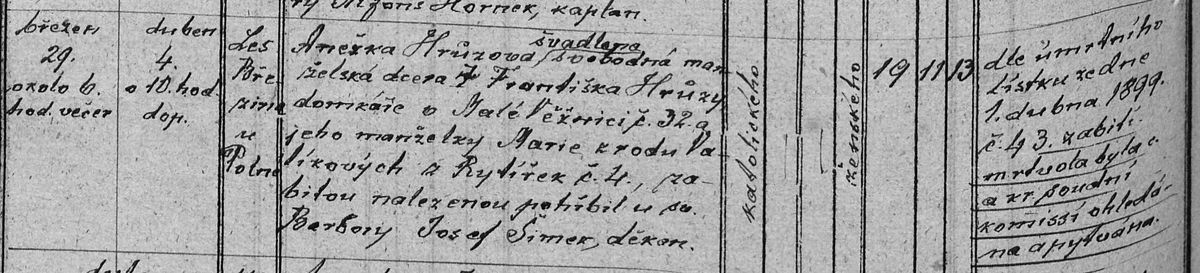 ry Alfons Hornek, kaplan.
březen
29.
okolo 6.
hod. večer
duben
4.
o 10. hod.
dop.
Les
Bře-
zina
u
Polné
švadlena
Anežka Hrůzova, svobodná man-
želská dcera † Františka Hrůzy
domkáře v Malé Věžnici č. 32. a
jeho manželky Marie, z rodu Va-
líkových z Rytířek č. 4., za-
bitou nalezenou pohřbil u sv.
Barbory Josef Šimek, děkan.
katolického
ženského
19 11 13
dle úmrtního
lístku ze dne
1. dubna 1899.
č. 43. zabití.
mrtvola byla c.
a kr. soudní
komissí ohledá-
na a pytvána.